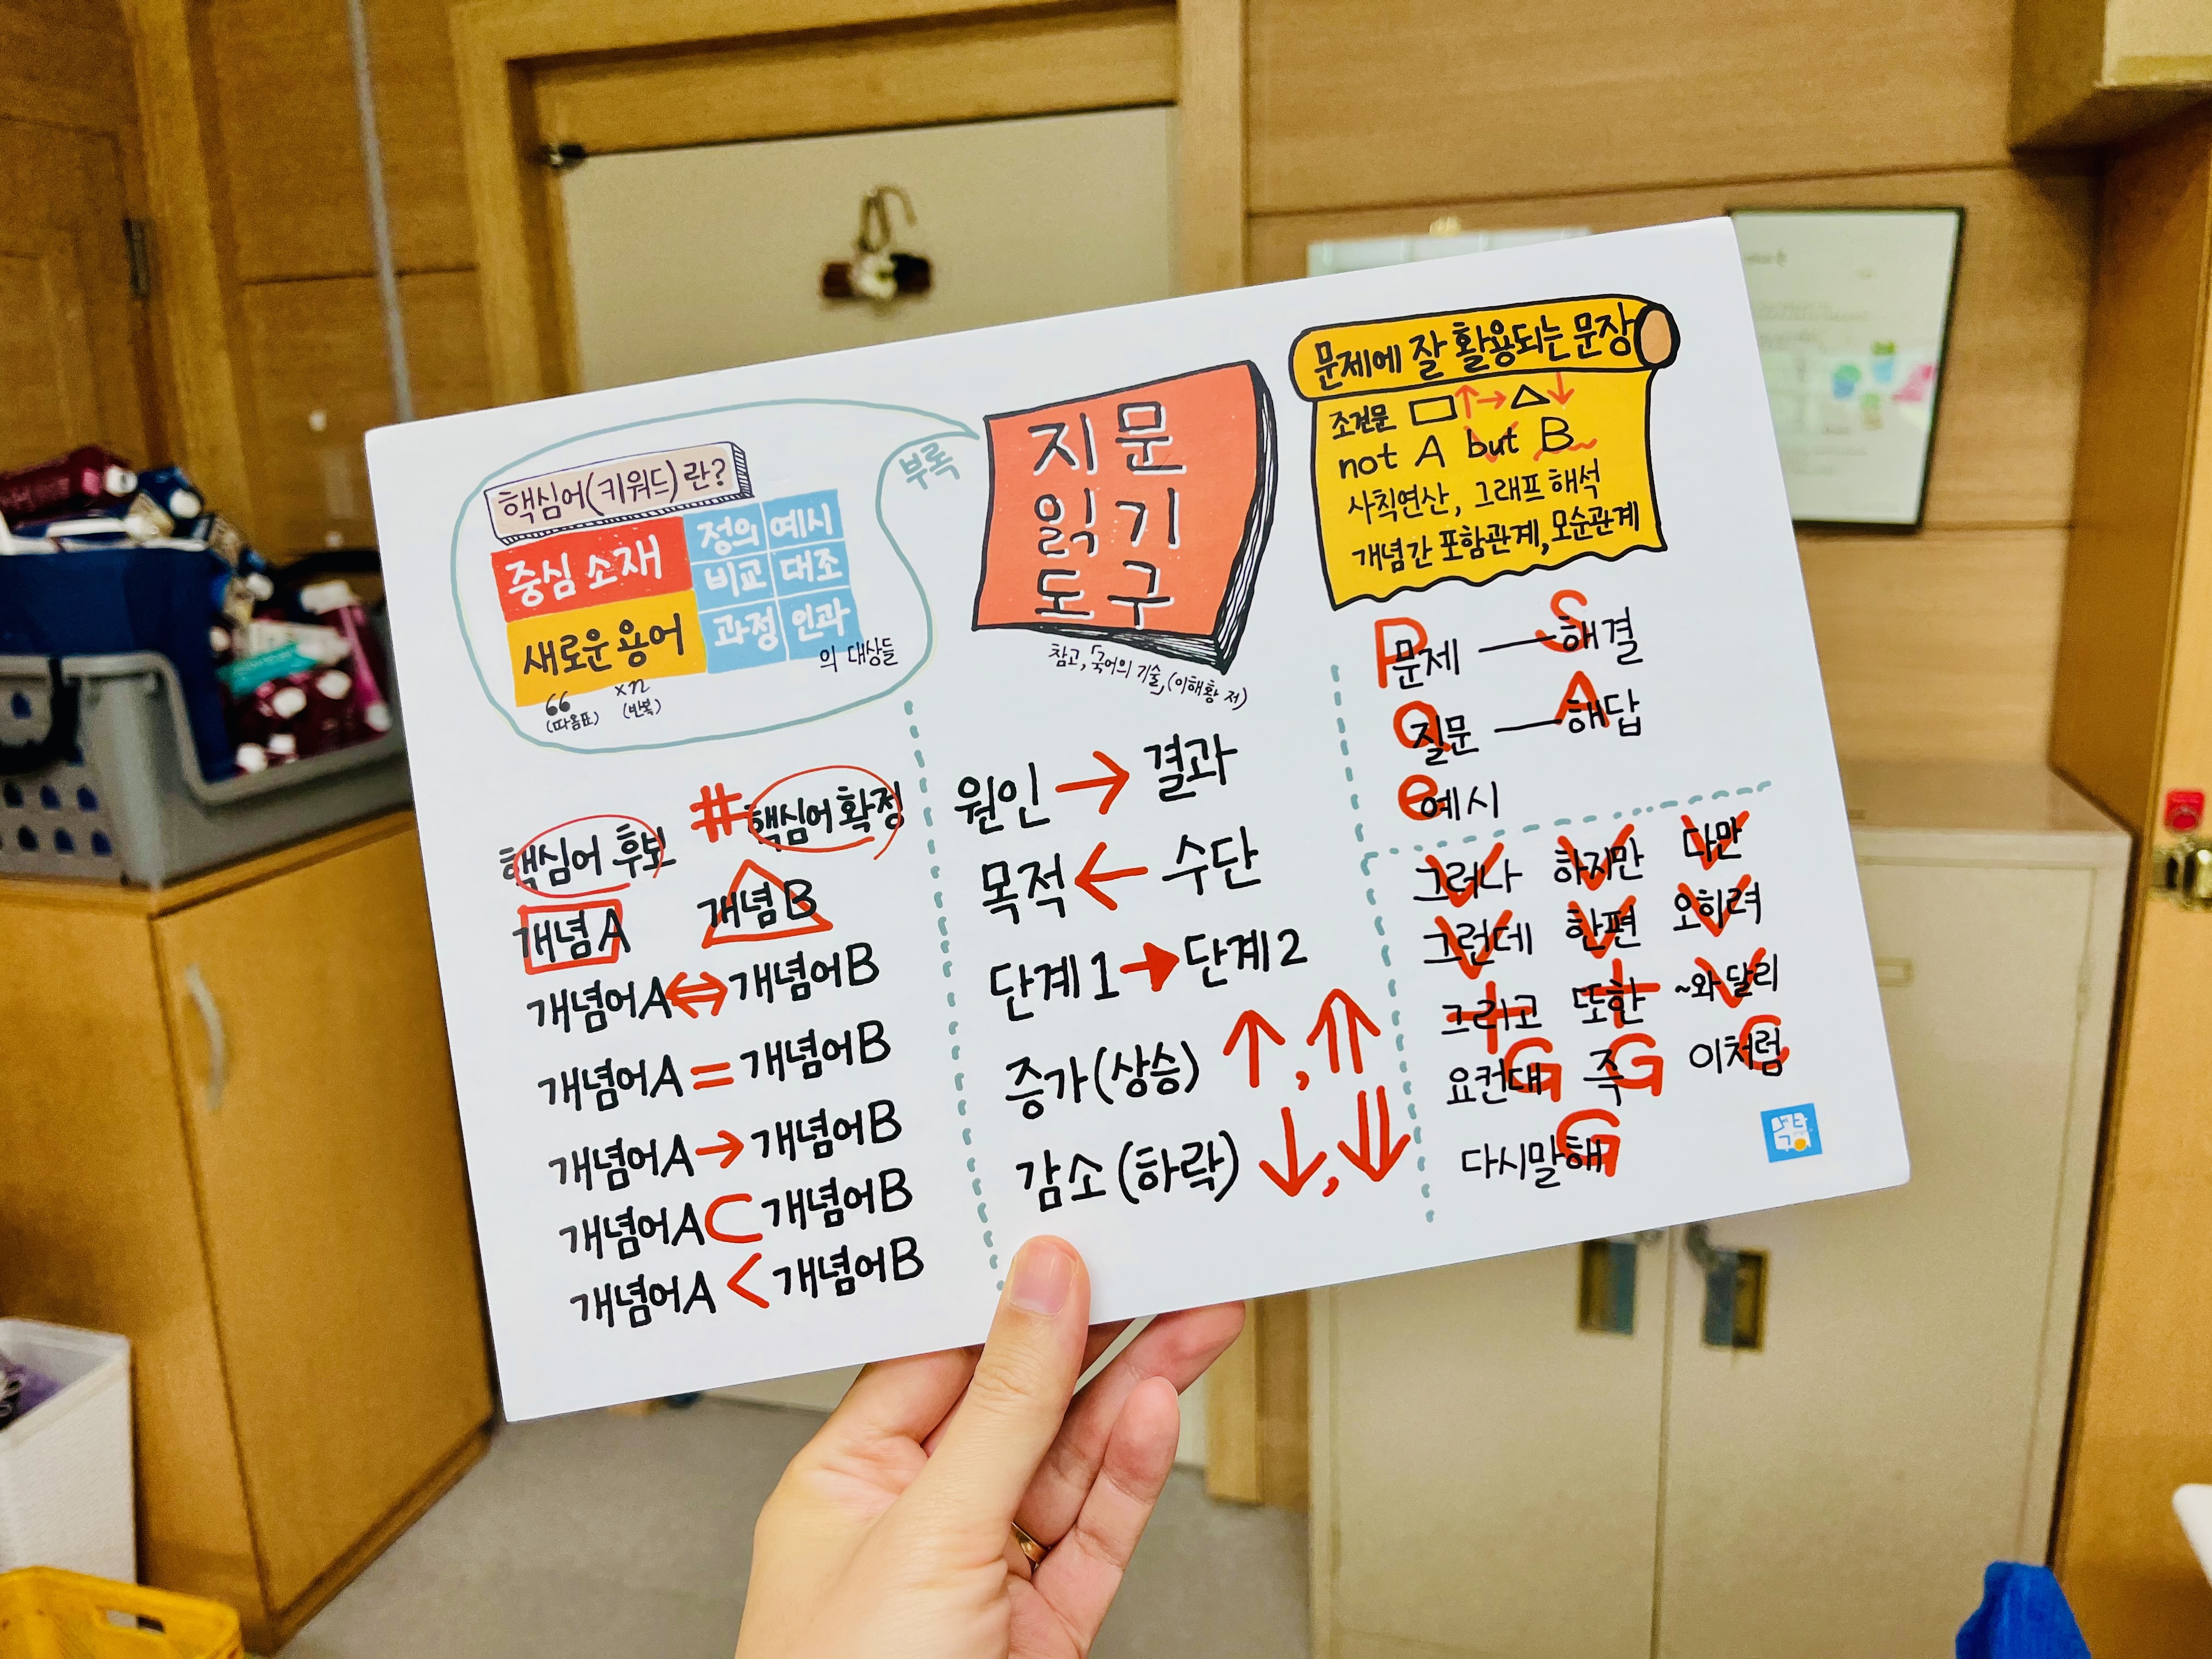 지문
읽기
도구
참고, 「국어의 기술」, (이해황 저)
부록
핵심어(키워드)란?
중심 소재
새로운 용어
정의 예시
비교 대조
과정 인과
의 대상들
“ ×n
(따옴표) (반복)
문제에 잘 활용되는 문장
조건문 □↑→△↓
not A but B
사칙연산, 그래프 해석
개념간 포함관계, 모순관계
핵심어 후보 #핵심어 확정
개념A 개념B
개념어A⇔개념어B
개념어A=개념어B
개념어A→개념어B
개념어A⊂개념어B
개념어A<개념어B
원인→결과
목적←수단
단계1→단계2
증가(상승) ↑,⇑
감소(하락) ↓,⇓
P문제 — S해결
Q질문 — A해답
e예시
그러나 V 하지만 V 다만 V
그런데 V 한편 V 오히려 V
그리고 + 또한 + ~와 달리 V
요컨대 G 즉 G 이처럼 C
다시말해 G